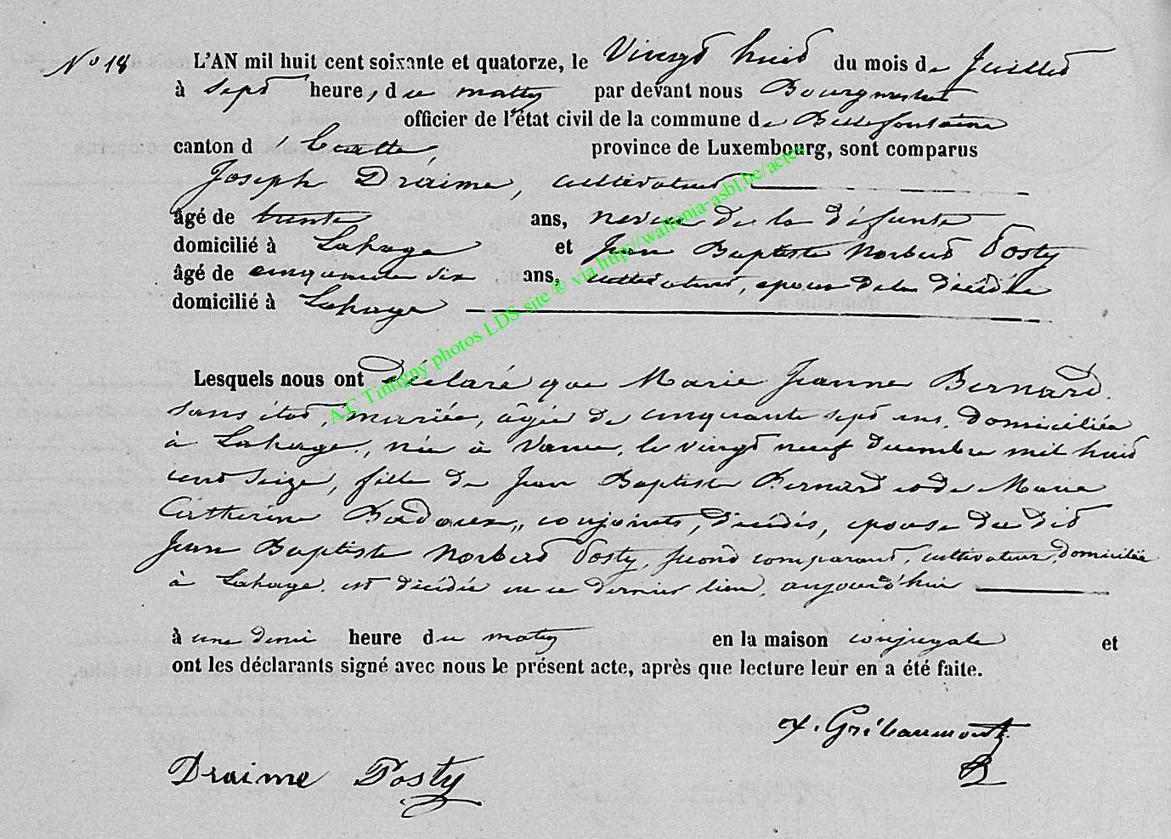 No 18 L'AN mil huit cent soixante et quatorze, le Vingt huit du mois de Juillet
à Sept heures du matin par devant nous Bourgmestre
officier de l'état civil de la commune de Bellefontaine
canton d'Etalle, province de Luxembourg, sont comparus
Joseph Draime, cultivateur
âgé de trente ans, neveu de la défunte
domicilié à Lahage et Jean Baptiste Norbert Posty
âgé de cinquante six ans, cultivateur, epoux de la décédée
domicilié à Lahage
Lesquels nous ont déclaré que Marie Jeanne Bernard,
sans état, mariée, âgée de cinquante sept ans, domiciliée
à Lahage, née à Vance, le vingt neuf decembre mil huit
cent seize, fille de Jean Baptiste Bernard et de Marie
Catherine Badoux, conjoints, décédés, epouse du dit
Jean Baptiste Norbert Posty, second comparant, cultivateur, domiciliée
à Lahage, est décédée en ce dernier lieu, aujourd'hui
à une demi heure du matin en la maison conjugale et
ont les déclarants signé avec nous le présent acte, après que lecture leur en a été faite.
Draime Posty
A.C Tintigny photos LDS site ® via http://wallonia-asbl.be/actes